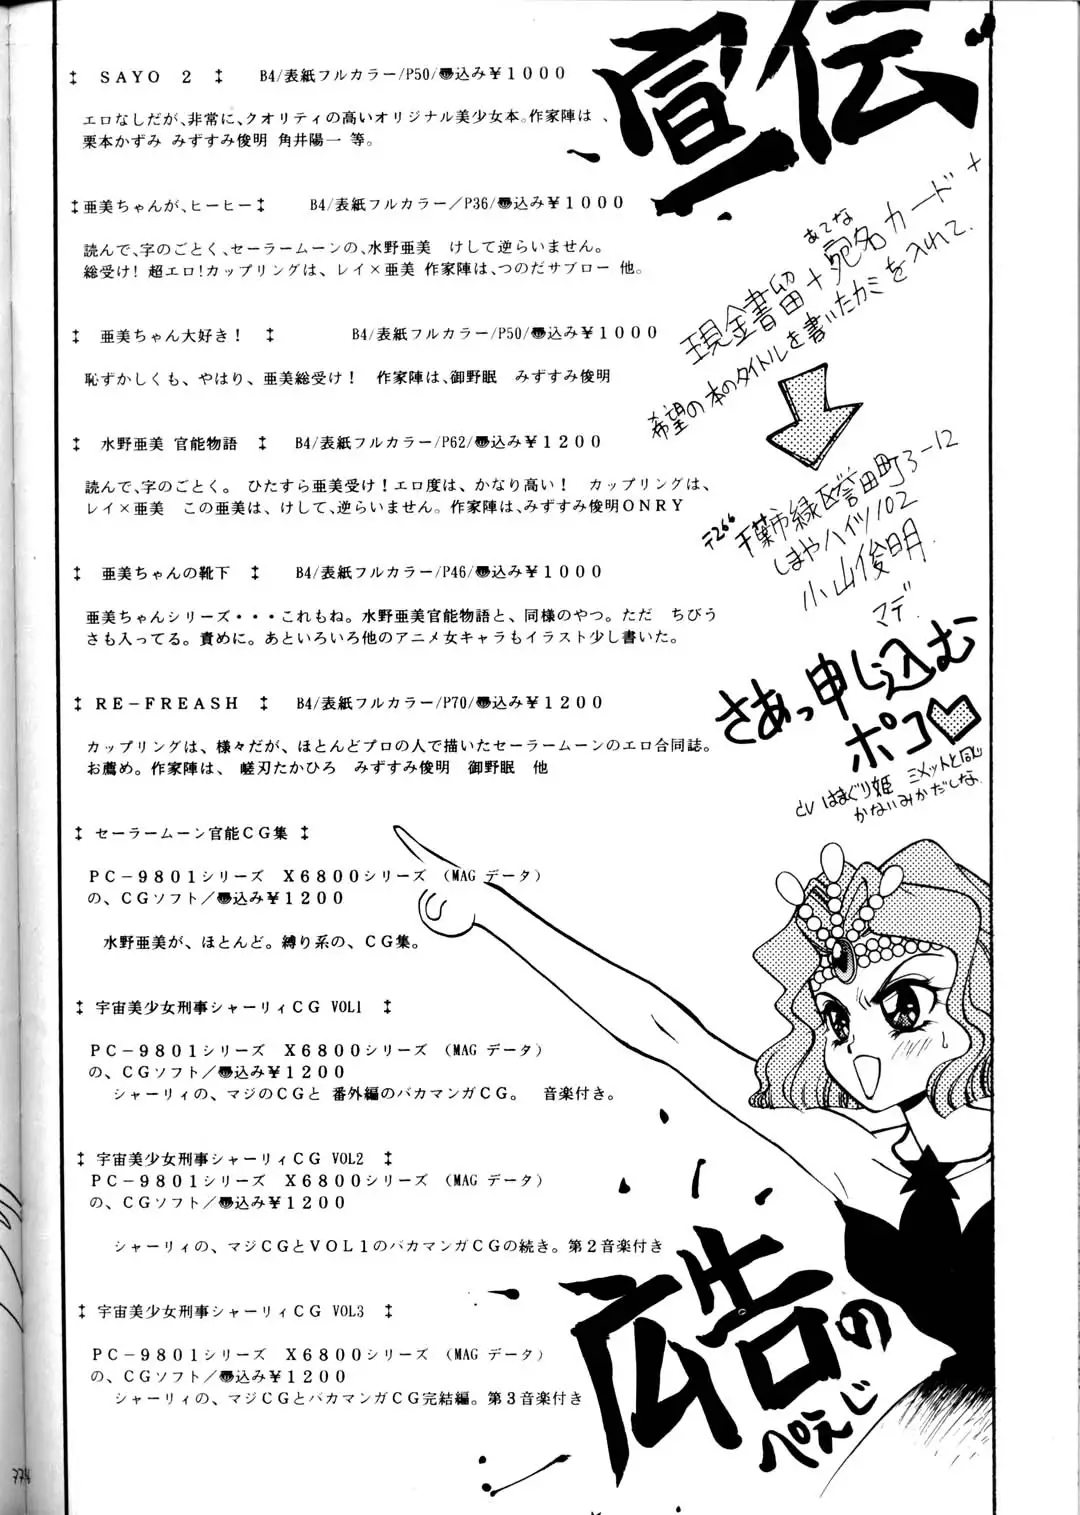 宣伝
‡ SAYO 2 ‡ B4/表紙フルカラー/P50/〠込み￥1000
エロなしだが、非常に、クオリティの高いオリジナル美少女本。作家陣は、
栗本かずみ みずすみ俊明 角井陽一 等。
‡亜美ちゃんが、ヒーヒー‡ B4/表紙フルカラー／P36/〠込み￥1000
読んで、字のごとく、セーラームーンの、水野亜美 けして逆らいません。
総受け! 超エロ!カップリングは、レイ×亜美 作家陣は、つのだサブロー 他。
‡ 亜美ちゃん大好き! ‡ B4/表紙フルカラー/P50/〠込み￥1000
恥ずかしくも、やはり、亜美総受け! 作家陣は、御野眠 みずすみ俊明
‡ 水野亜美 官能物語 ‡ B4/表紙フルカラー/P62/〠込み￥1200
読んで、字のごとく。 ひたすら亜美受け!エロ度は、かなり高い! カップリングは、
レイ×亜美 この亜美は、けして、逆らいません。作家陣は、みずすみ俊明ONRY
‡ 亜美ちゃんの靴下 ‡ B4/表紙フルカラー/P46/〠込み￥1000
亜美ちゃんシリーズ・・・これもね。水野亜美官能物語と、同様のやつ。ただ ちびう
さも入ってる。責めに。あといろいろ他のアニメ女キャラもイラスト少し書いた。
‡ RE－FREASH ‡ B4/表紙フルカラー/P70/〠込み￥1200
カップリングは、様々だが、ほとんどプロの人で描いたセーラームーンのエロ合同誌。
お薦め。作家陣は、 嵯刃たかひろ みずすみ俊明 御野眠 他
‡ セーラームーン官能CG集 ‡
PC－9801シリーズ X6800シリーズ (MAG データ)
の、CGソフト／〠込み￥1200
水野亜美が、ほとんど。縛り系の、CG集。
‡ 宇宙美少女刑事シャーリィCG VOL1 ‡
PC－9801シリーズ X6800シリーズ (MAG データ)
の、CGソフト/〠込み￥1200
シャーリィの、マジのCGと 番外編のバカマンガCG。 音楽付き。
‡ 宇宙美少女刑事シャーリィCG VOL2 ‡
PC－9801シリーズ X6800シリーズ (MAG データ)
の、CGソフト/〠込み￥1200
シャーリィの、マジCGとVOL1のバカマンガCGの続き。第2音楽付き
‡ 宇宙美少女刑事シャーリィCG VOL3 ‡
PC－9801シリーズ X6800シリーズ (MAG データ)
の、CGソフト/〠込み￥1200
シャーリィの、マジCGとバカマンガCG完結編。第3音楽付き
あてな
現金書留＋宛名カード＋
希望の本のタイトルを書いたカミを入れて
〒266
千葉市緑区誉田町3-12
しまやハイツ102
小山俊明
マデ
さあっ申し込む
ポコ♡
CV はまぐり姫 ミメットと同じ
かないみかだしな
広告の
ぺえじ